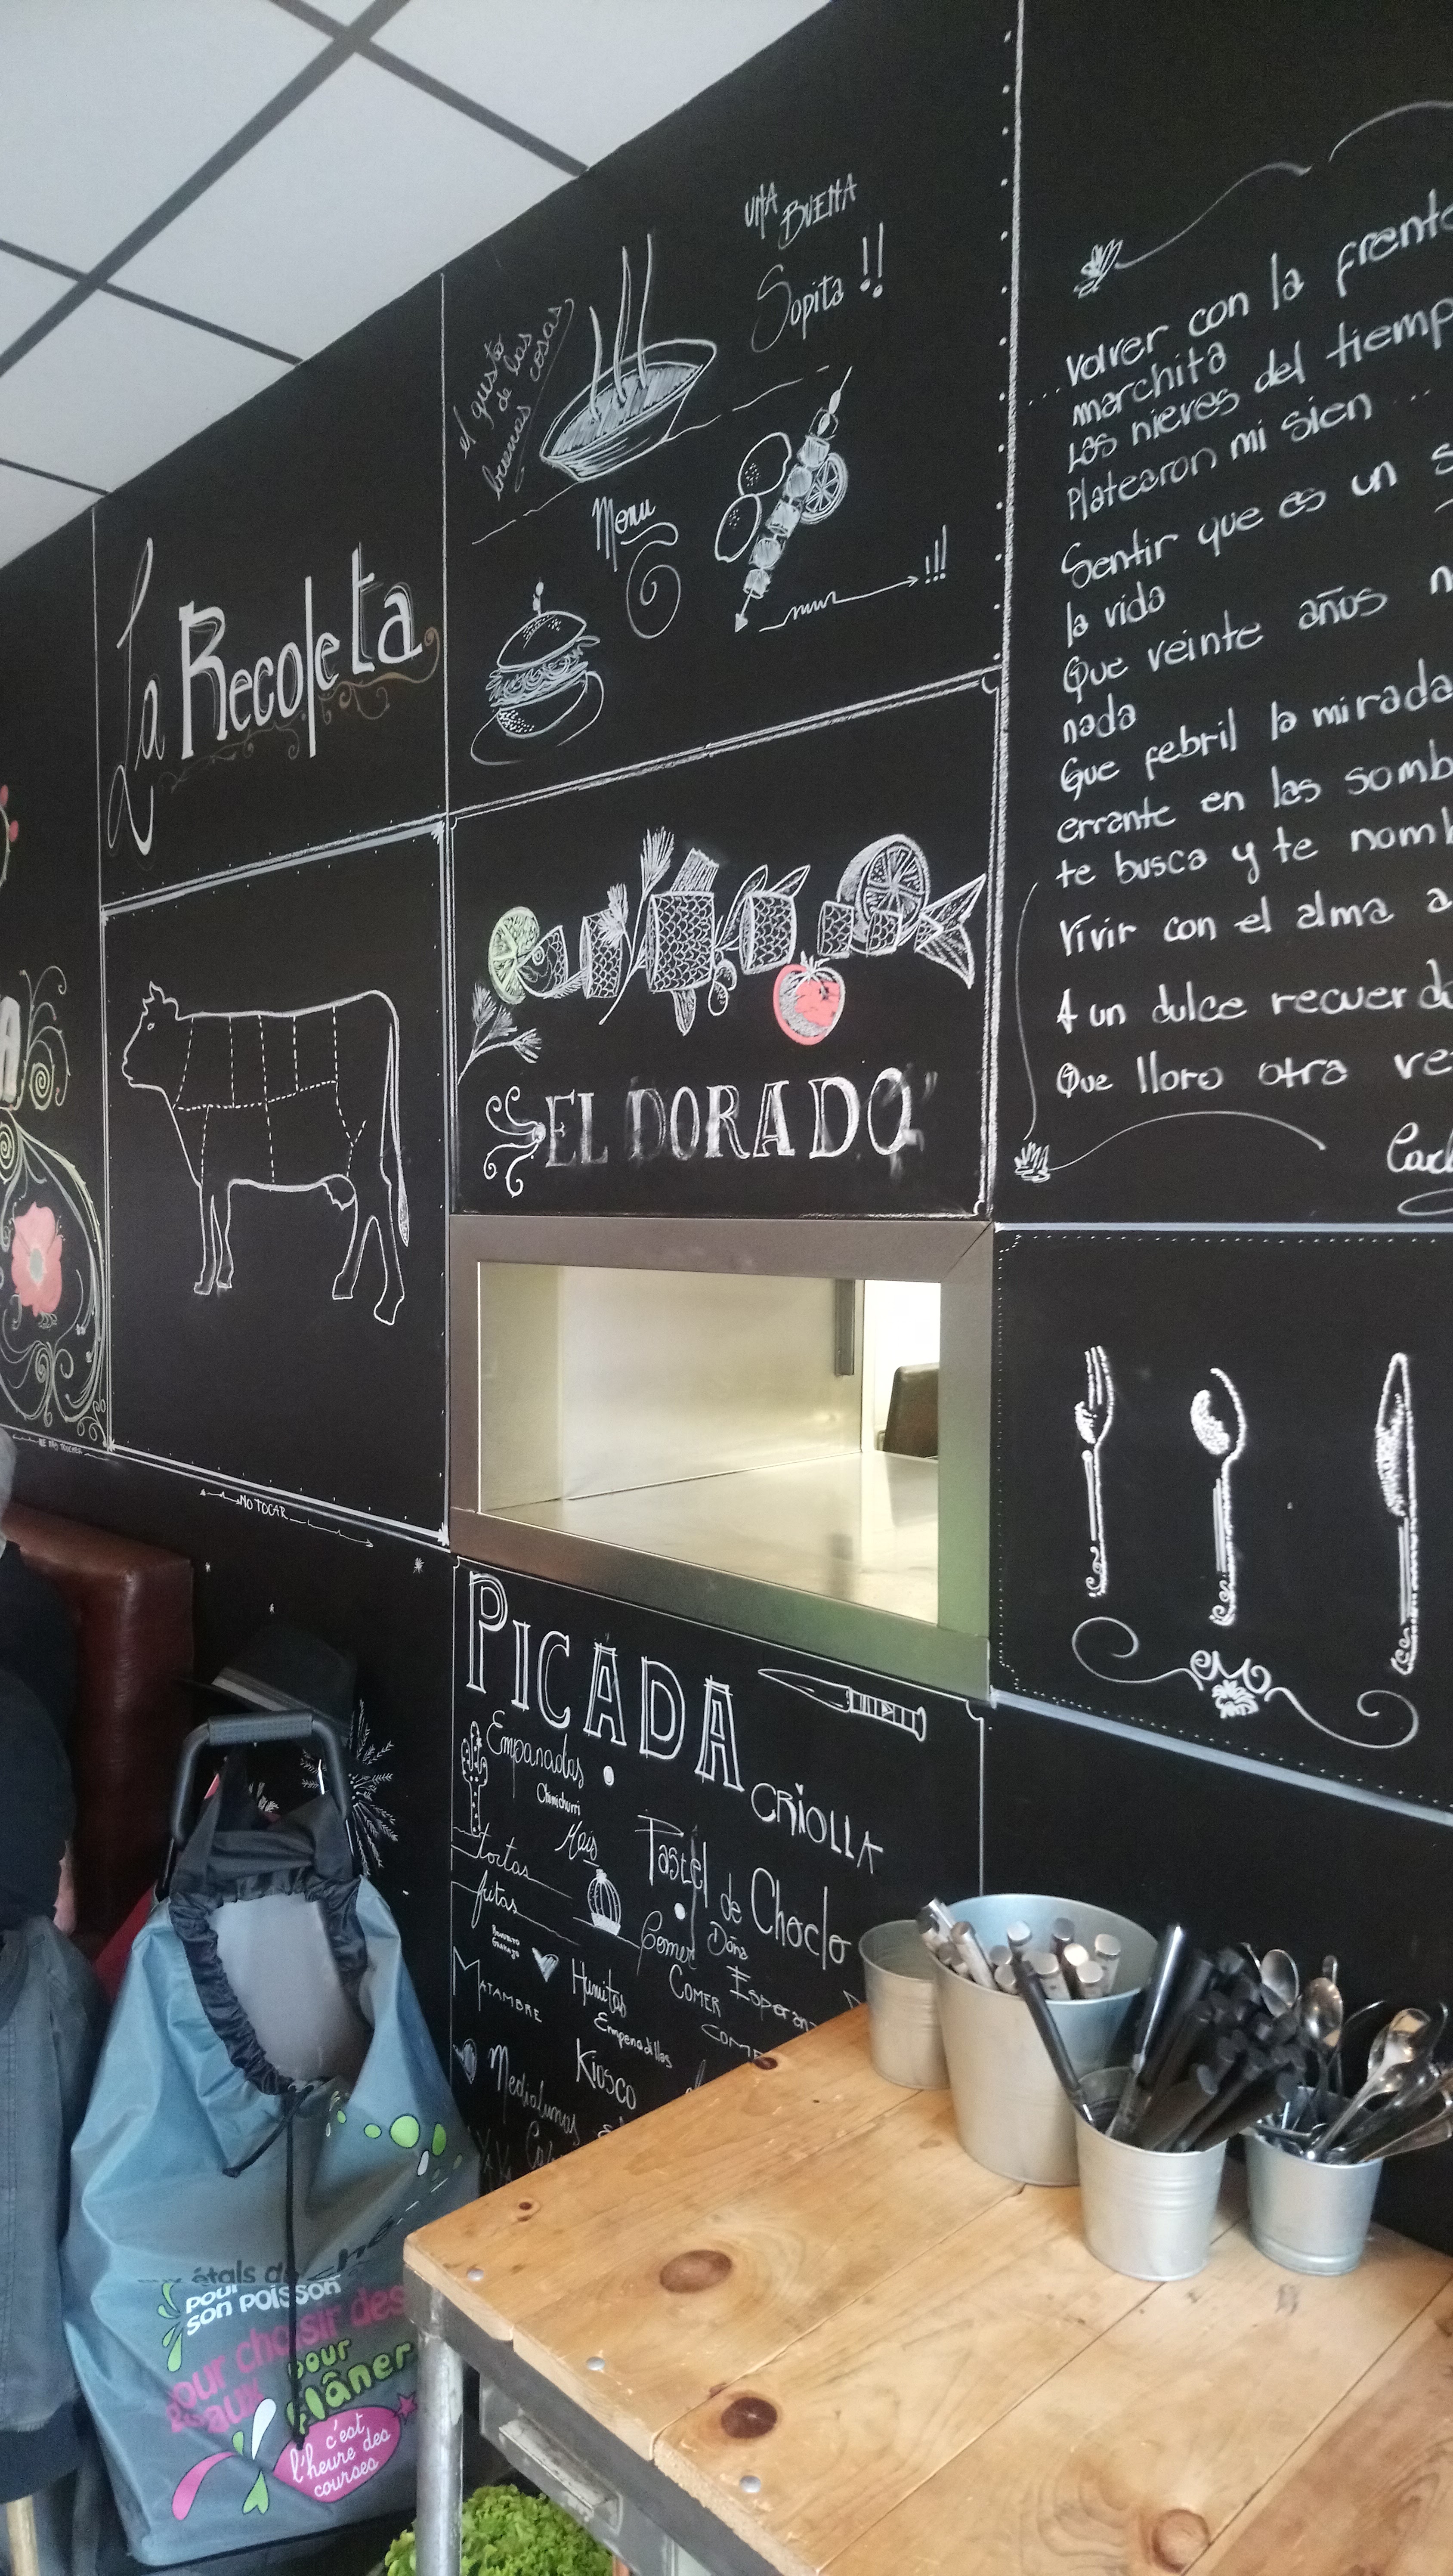 UNA
BUENA
Sopita !!
el gusto
de las
buenas cosas
Menu
!!!
La Recoleta
"EL DORADO"
Volver con la frente
marchita
Las nieves del
Platearon mi sien ...
Sentir que es un
la vida
Que veinte años
nada
Que febril la mirada
errante en las
te busca y te
Vivir con el alma a
A un dulce
Que lloro otra
A
NO TOCAR
PICADA
CRIOLLA
Empanadas
Chimichurri
Mais
tortas
fritas
Pastel de Choclo
Comer
Doña
MATAMBRE
Humitas
COMER
Empanadillas
KIOSCO
Medialunas
étals du
pour
son poisson
pour choisir des
pour
flâner
c'est
l'heure des
courses